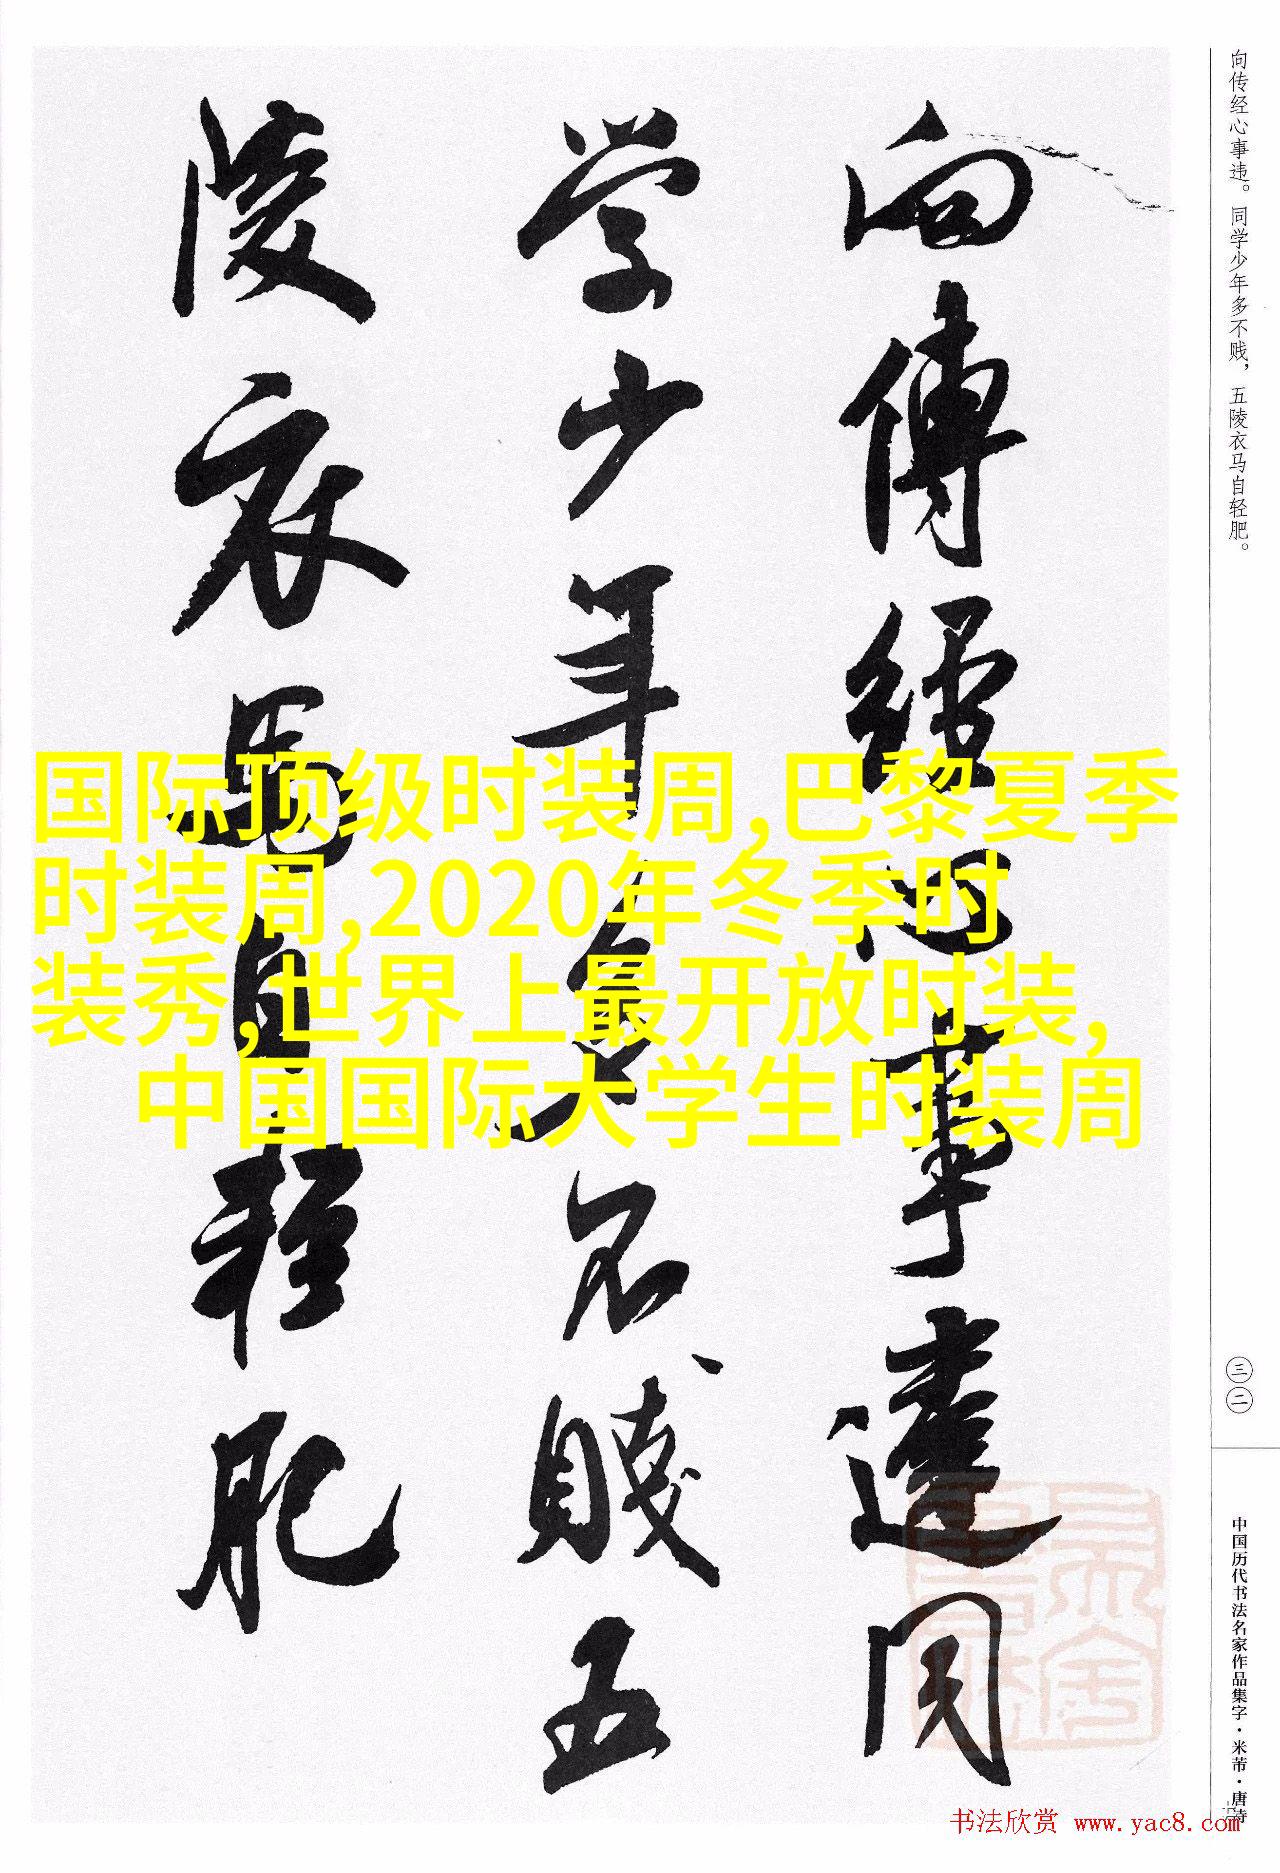 向传经心事违。同学少年多不贱，五陵衣马自轻肥。
三二
中国历代书法名家作品集字·米芾·唐诗
向傳經心事違同
学少年多不賤五
陵衣馬自輕肥
国际顶级时装周,巴黎夏季
时装周,2020年冬季时
装秀,世界上最开放时装,
中国国际大学生时装周
书法欣赏 www.yac8.com